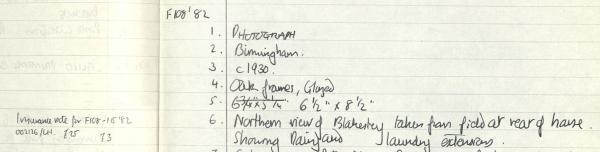 F108'82
1. PHOTOGRAPH
2. Birmingham.
3. c1930.
4. Oak frames, Glazed
5. 6 1/2" x 8 1/2"
6. Northern view of Blakesley taken from field at rear of house.
Showing Dairy and laundry extensions.
Insurance note for F108-115'82
002126/LH. £25